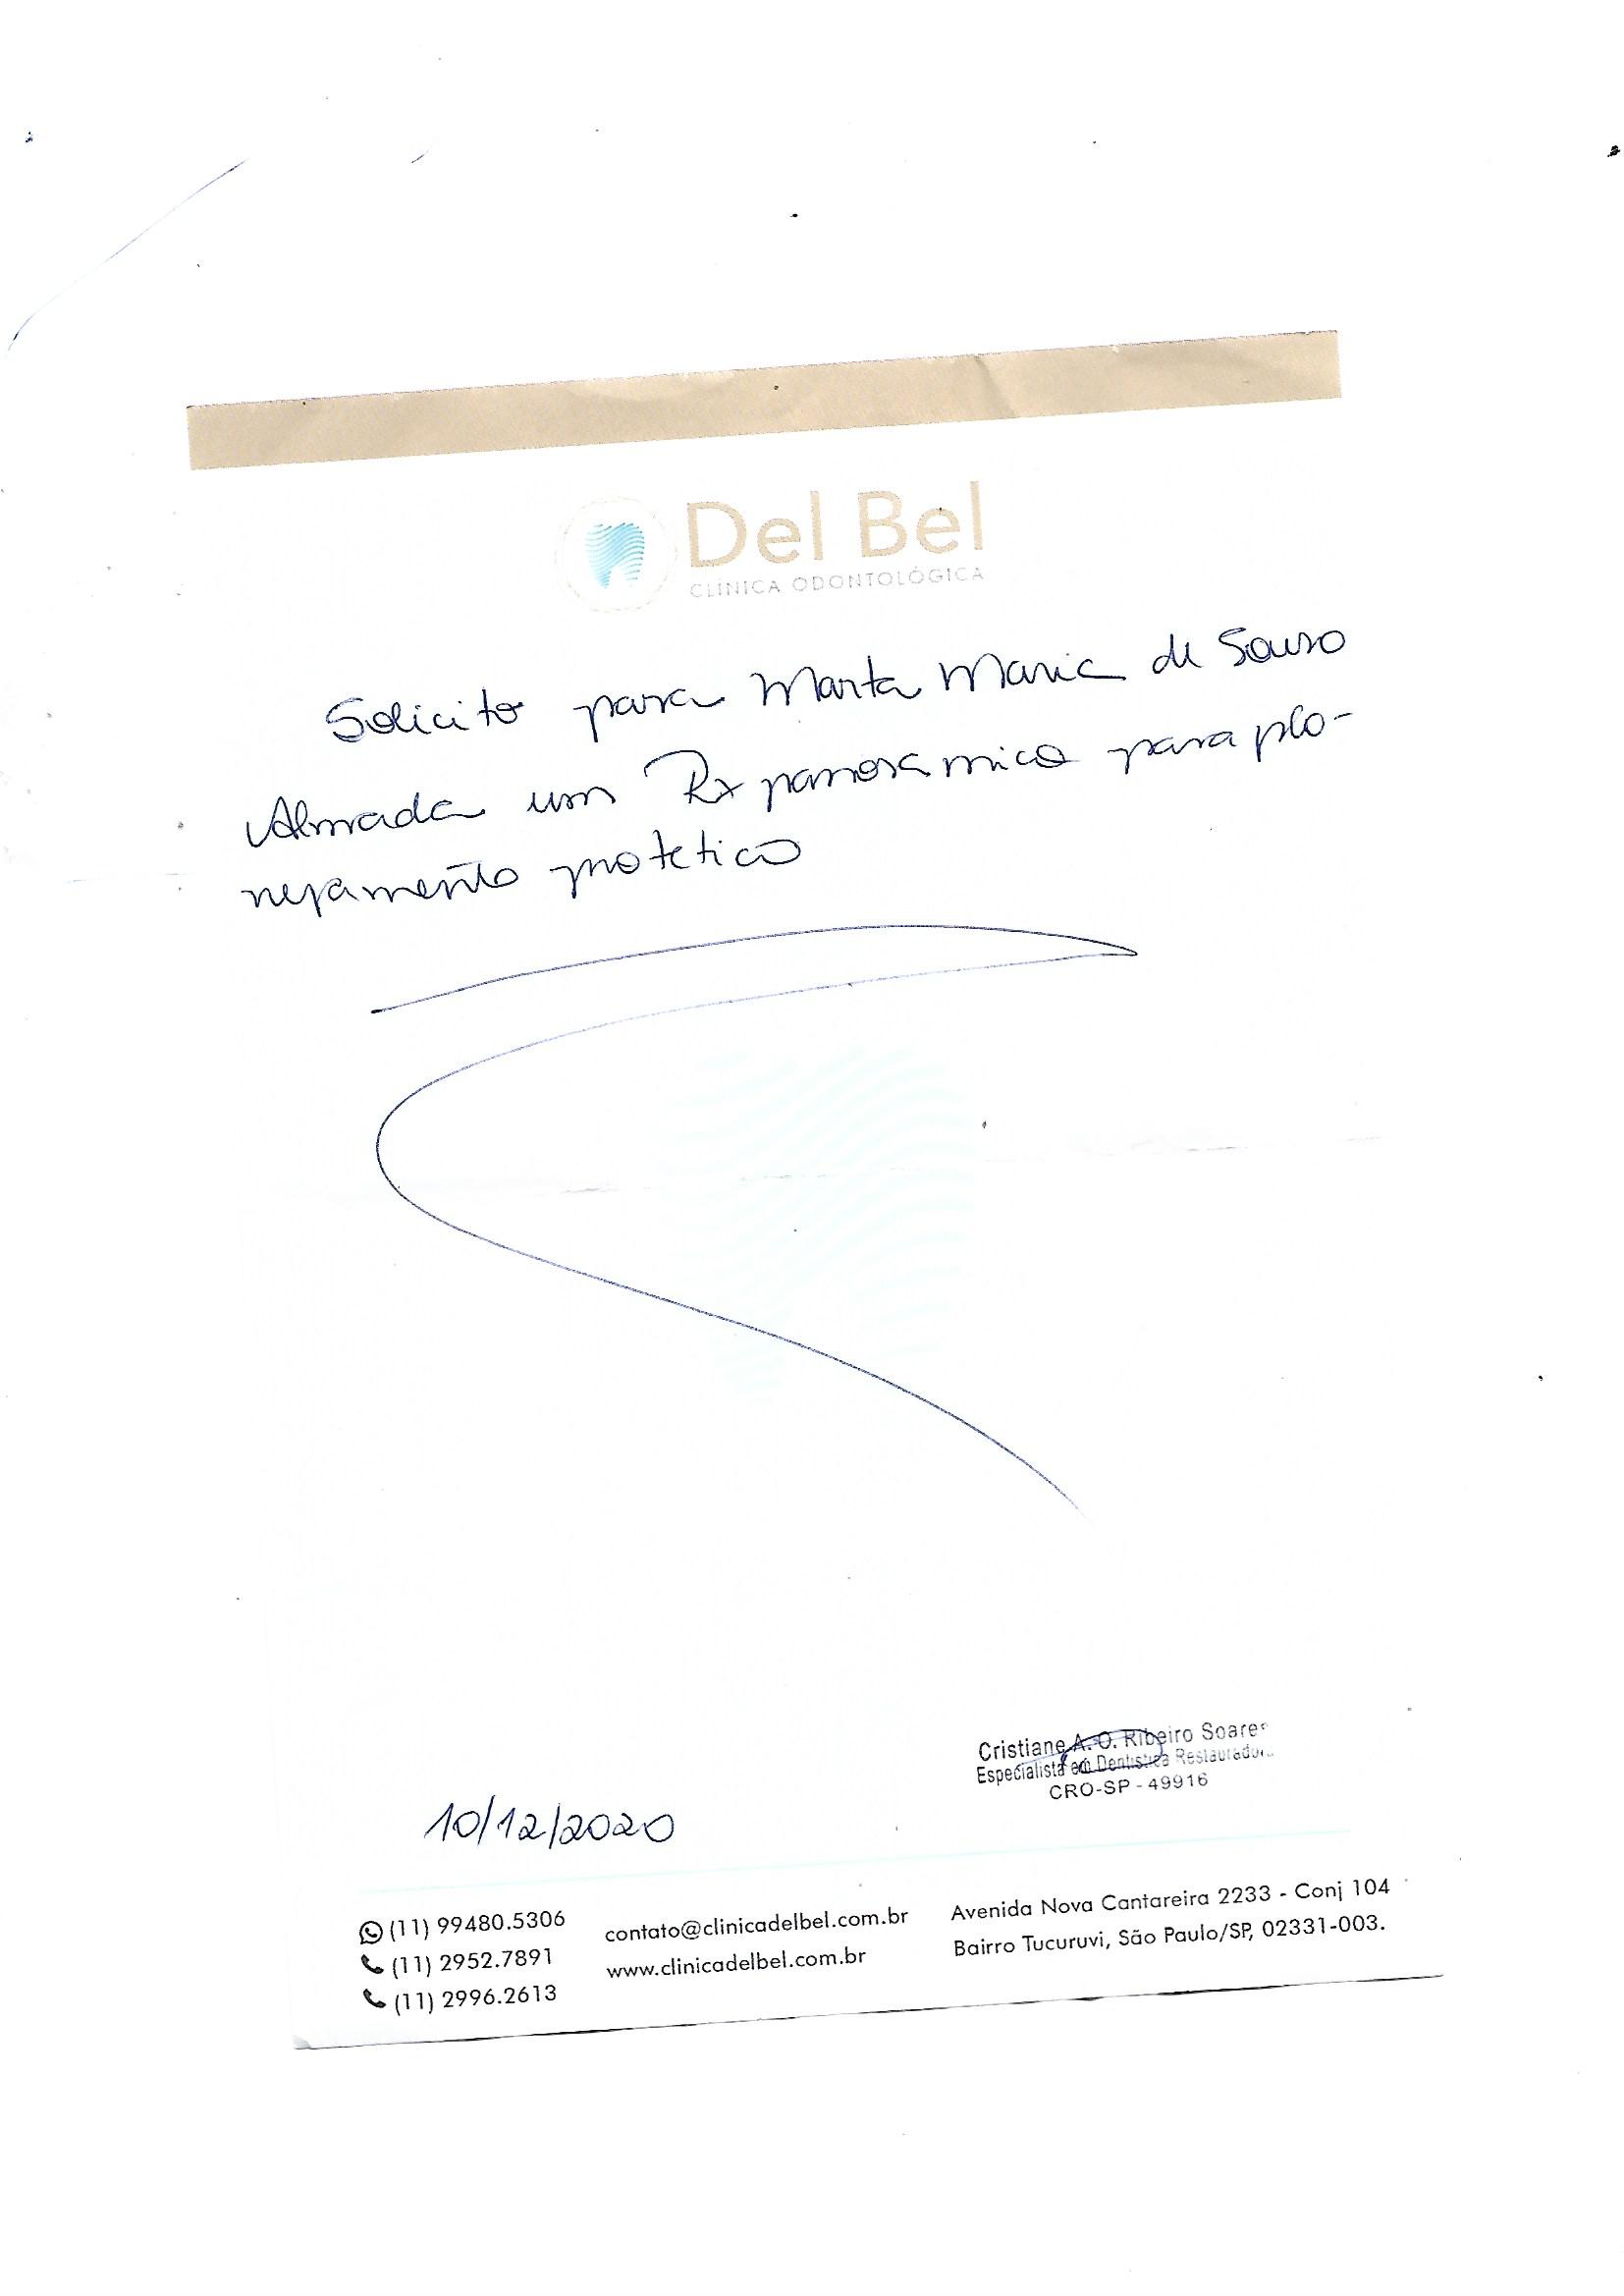 Del Bel
CLÍNICA ODONTOLÓGICA
Solicito para Marta Maria de Souza
Almada um Rx panorâmico para pla-
nejamento protético
Cristiane A. O. Ribeiro Soares
Especialista em Dentística Restauradora
CRO-SP - 49916
10/12/2020
(11) 99480.5306
(11) 2952.7891
(11) 2996.2613
contato@clinicadelbel.com.br
www.clinicadelbel.com.br
Avenida Nova Cantareira 2233 - Conj 104
Bairro Tucuruvi, São Paulo/SP, 02331-003.